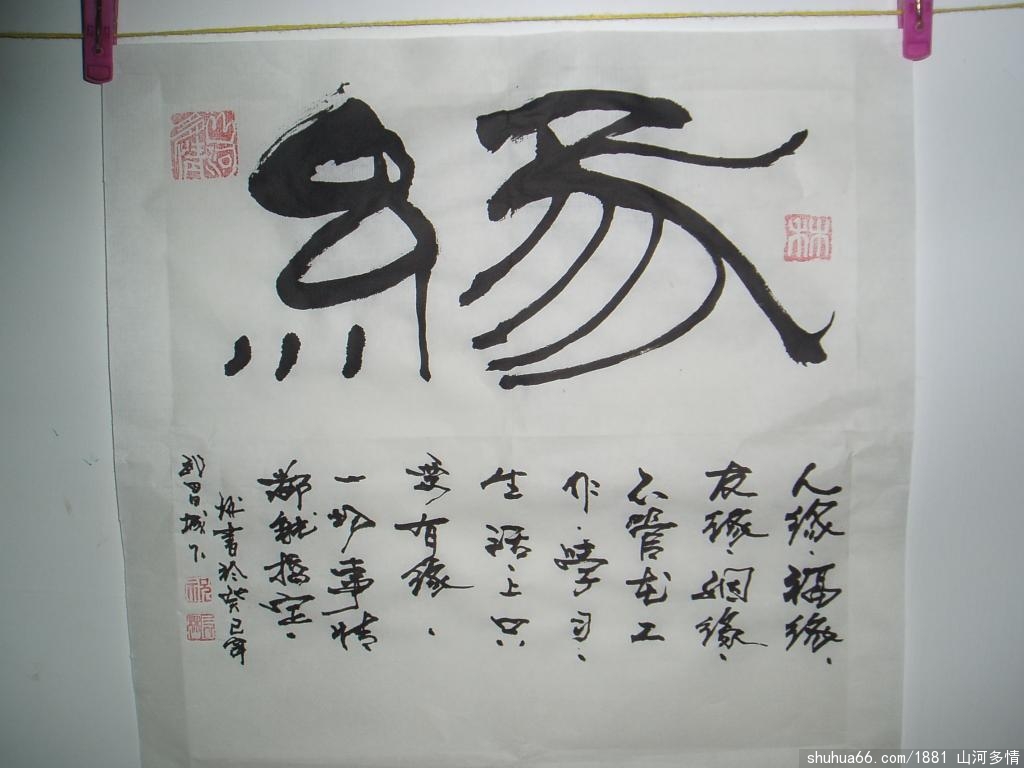 緣
人缘、福缘、
友缘、姻缘、
不管在工
作、学习、
生活、上只
要有缘、
一切事情
都能搞定、
書於癸巳年
武昌城下
山河多情
shuhua66.com/1881 山河多情